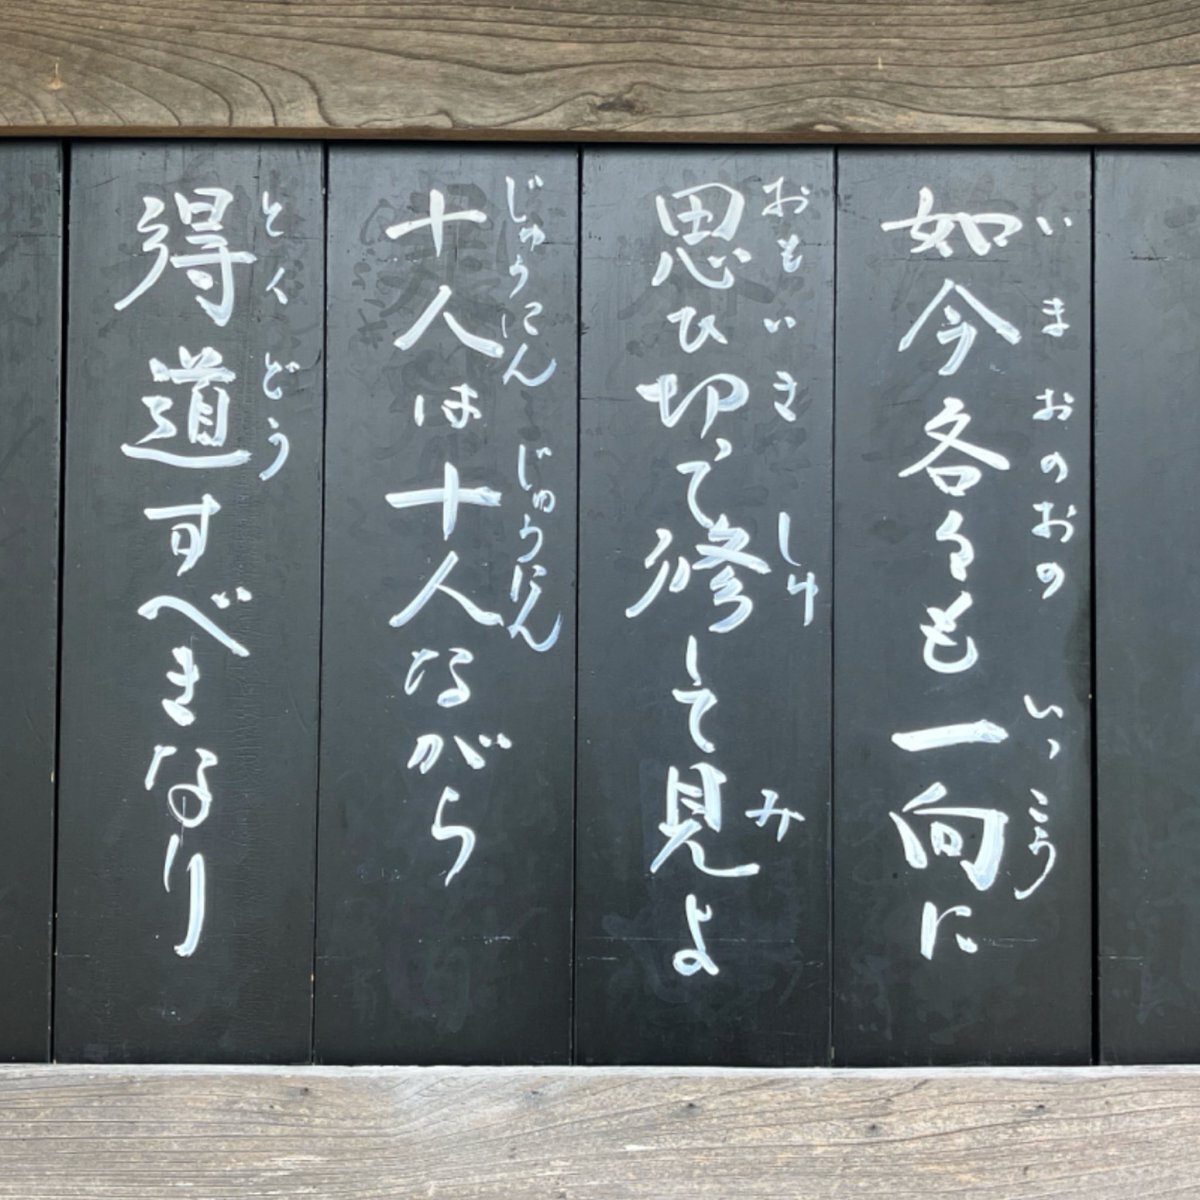 如今各々も一向に
いま おのおの いっこう
思ひ切って修して見よ
おもい き しゅ み
十人は十人ながら
じゅうにん じゅうにん
得道すべきなり
とくどう